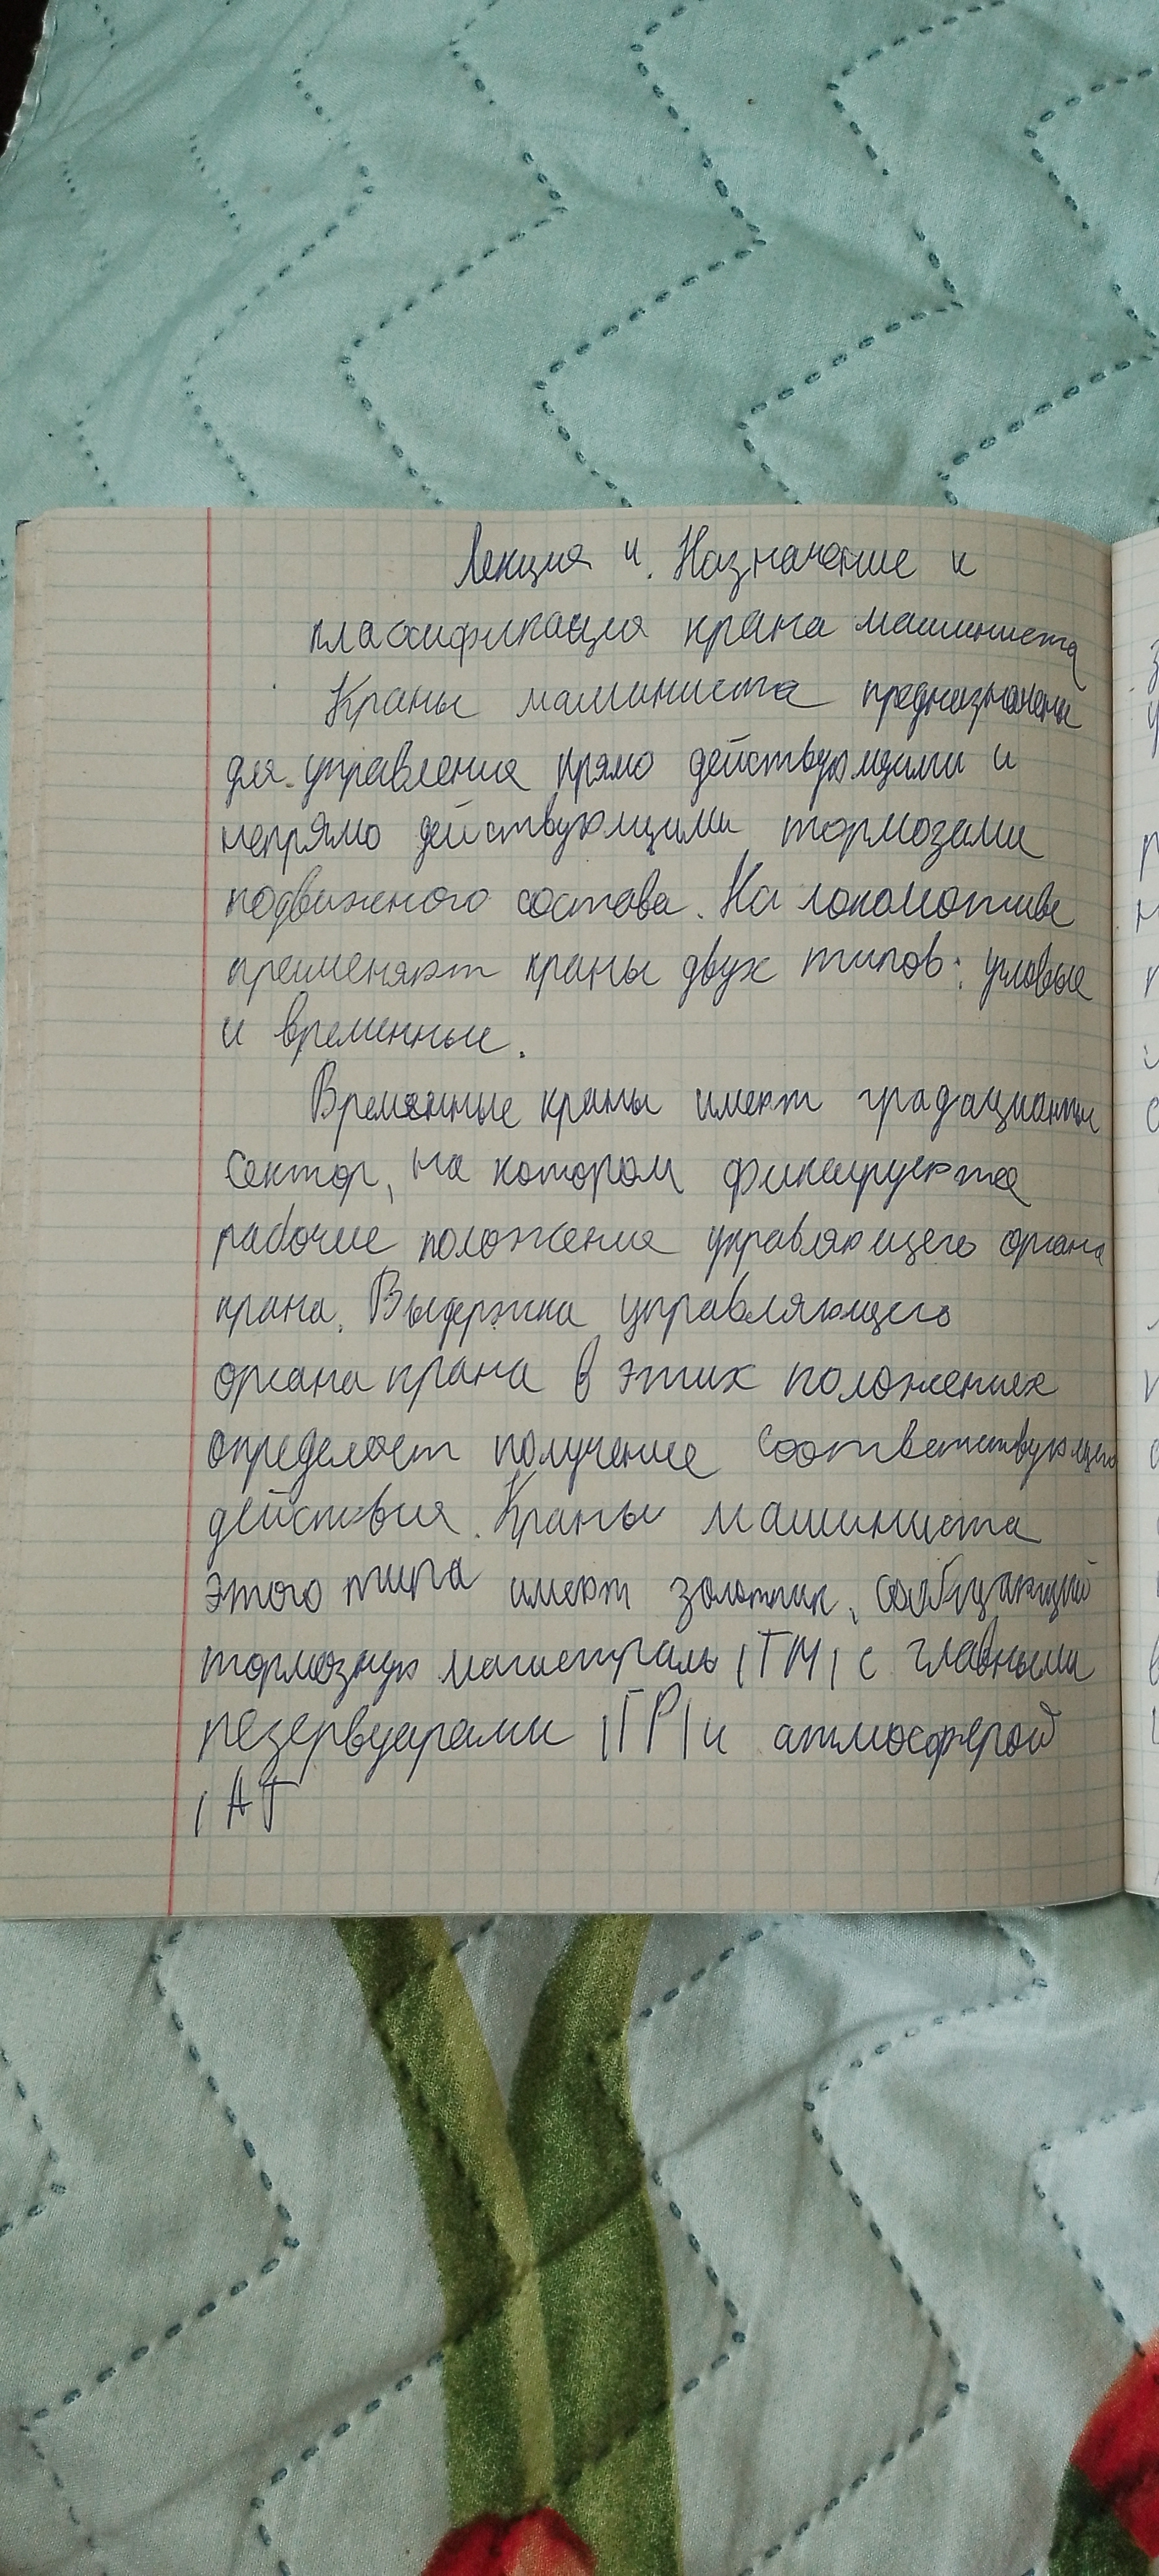 Лекция 4. Назначение и
классификация крана машиниста
Краны машиниста предназначены
для управления прямо действующими и
непрямо действующими тормозами
подвижного состава. На локомотиве
применяют краны двух типов: угловые
и временные.
Временные краны имеют градационный
сектор, на котором фиксируются
рабочие положения управляющего органа
крана. Выдержка управляющего
органа крана в этих положениях
определяет получение соответствующего
действия. Краны машиниста
этого типа имеют золотник, сообщающий
тормозную магистраль (ТМ) с главными
резервуарами (ГР) и атмосферой
(АТ